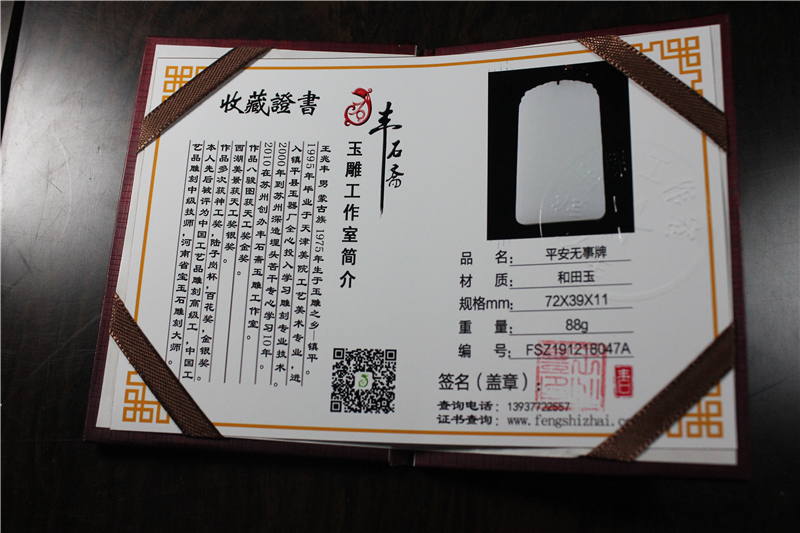 收藏證書
丰石斋
玉雕工作室简介
王兆丰 男 蒙古族 1975年生于玉雕之乡—镇平。
1995年毕业于天津美院工艺美术专业，进
入镇平县玉器厂全心投入学习雕刻专业技术。
2000年到苏州深造埋头苦干专心学习10年。
2010在苏州创办丰石斋玉雕工作室。
作品八骏图获天工奖金奖。
西湖美景获天工奖银奖。
作品多次获神工奖，陆子岗杯，百花奖，金银奖。
本人先后被评为中国工艺品雕刻高级工，中国工
艺品雕刻中级技师，河南省宝玉石雕刻大师。
品 名： 平安无事牌
材 质： 和田玉
规格mm： 72X39X11
重 量： 88g
编 号： FSZ191218047A
签名（盖章）：
查询电话：13937722557
证书查询：www.fengshizhai.c